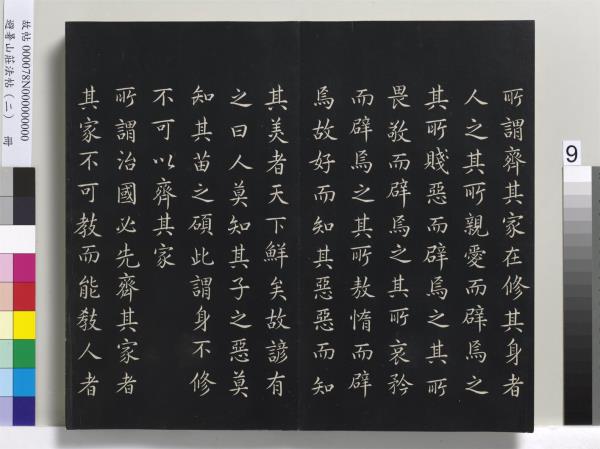 所謂齊其家在修其身者
人之其所親愛而辟焉之
其所賤惡而辟焉之其所
畏敬而辟焉之其所哀矜
而辟焉之其所敖惰而辟
焉故好而知其惡惡而知
其美者天下鮮矣故諺有
之曰人莫知其子之惡莫
知其苗之碩此謂身不修
不可以齊其家
所謂治國必先齊其家者
其家不可教而能教人者
故帖 000078N000000000
避暑山莊法帖(二) 冊
9